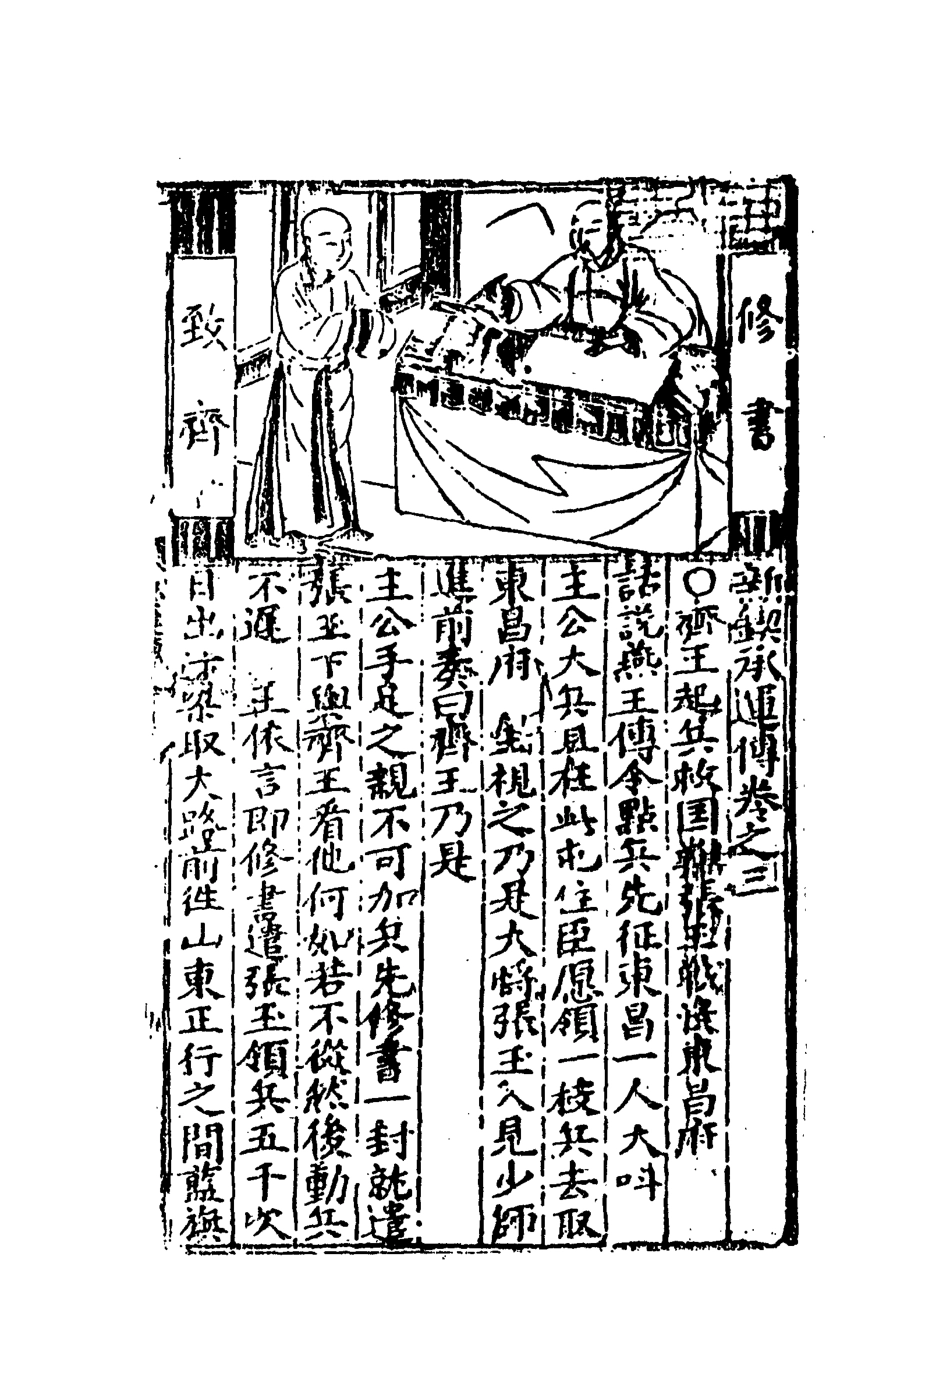 修書
致齊
新鍥承運傳卷之三
○齊王起兵救国難張玉戰渰東昌府
話說燕王傳令點兵先征東昌一人大呌
主公大兵且在此屯住臣愿領一枝兵去取
東昌府 視之乃是大將張玉入見少師
進前奏曰齊王乃是
主公手足之親不可加兵先修書一封就遣
張玉下與齊王看他何如若不從然後動兵
不遲 王依言即修書遣張玉領兵五千次
日出 梁取大路前徃山東正行之間藍旗